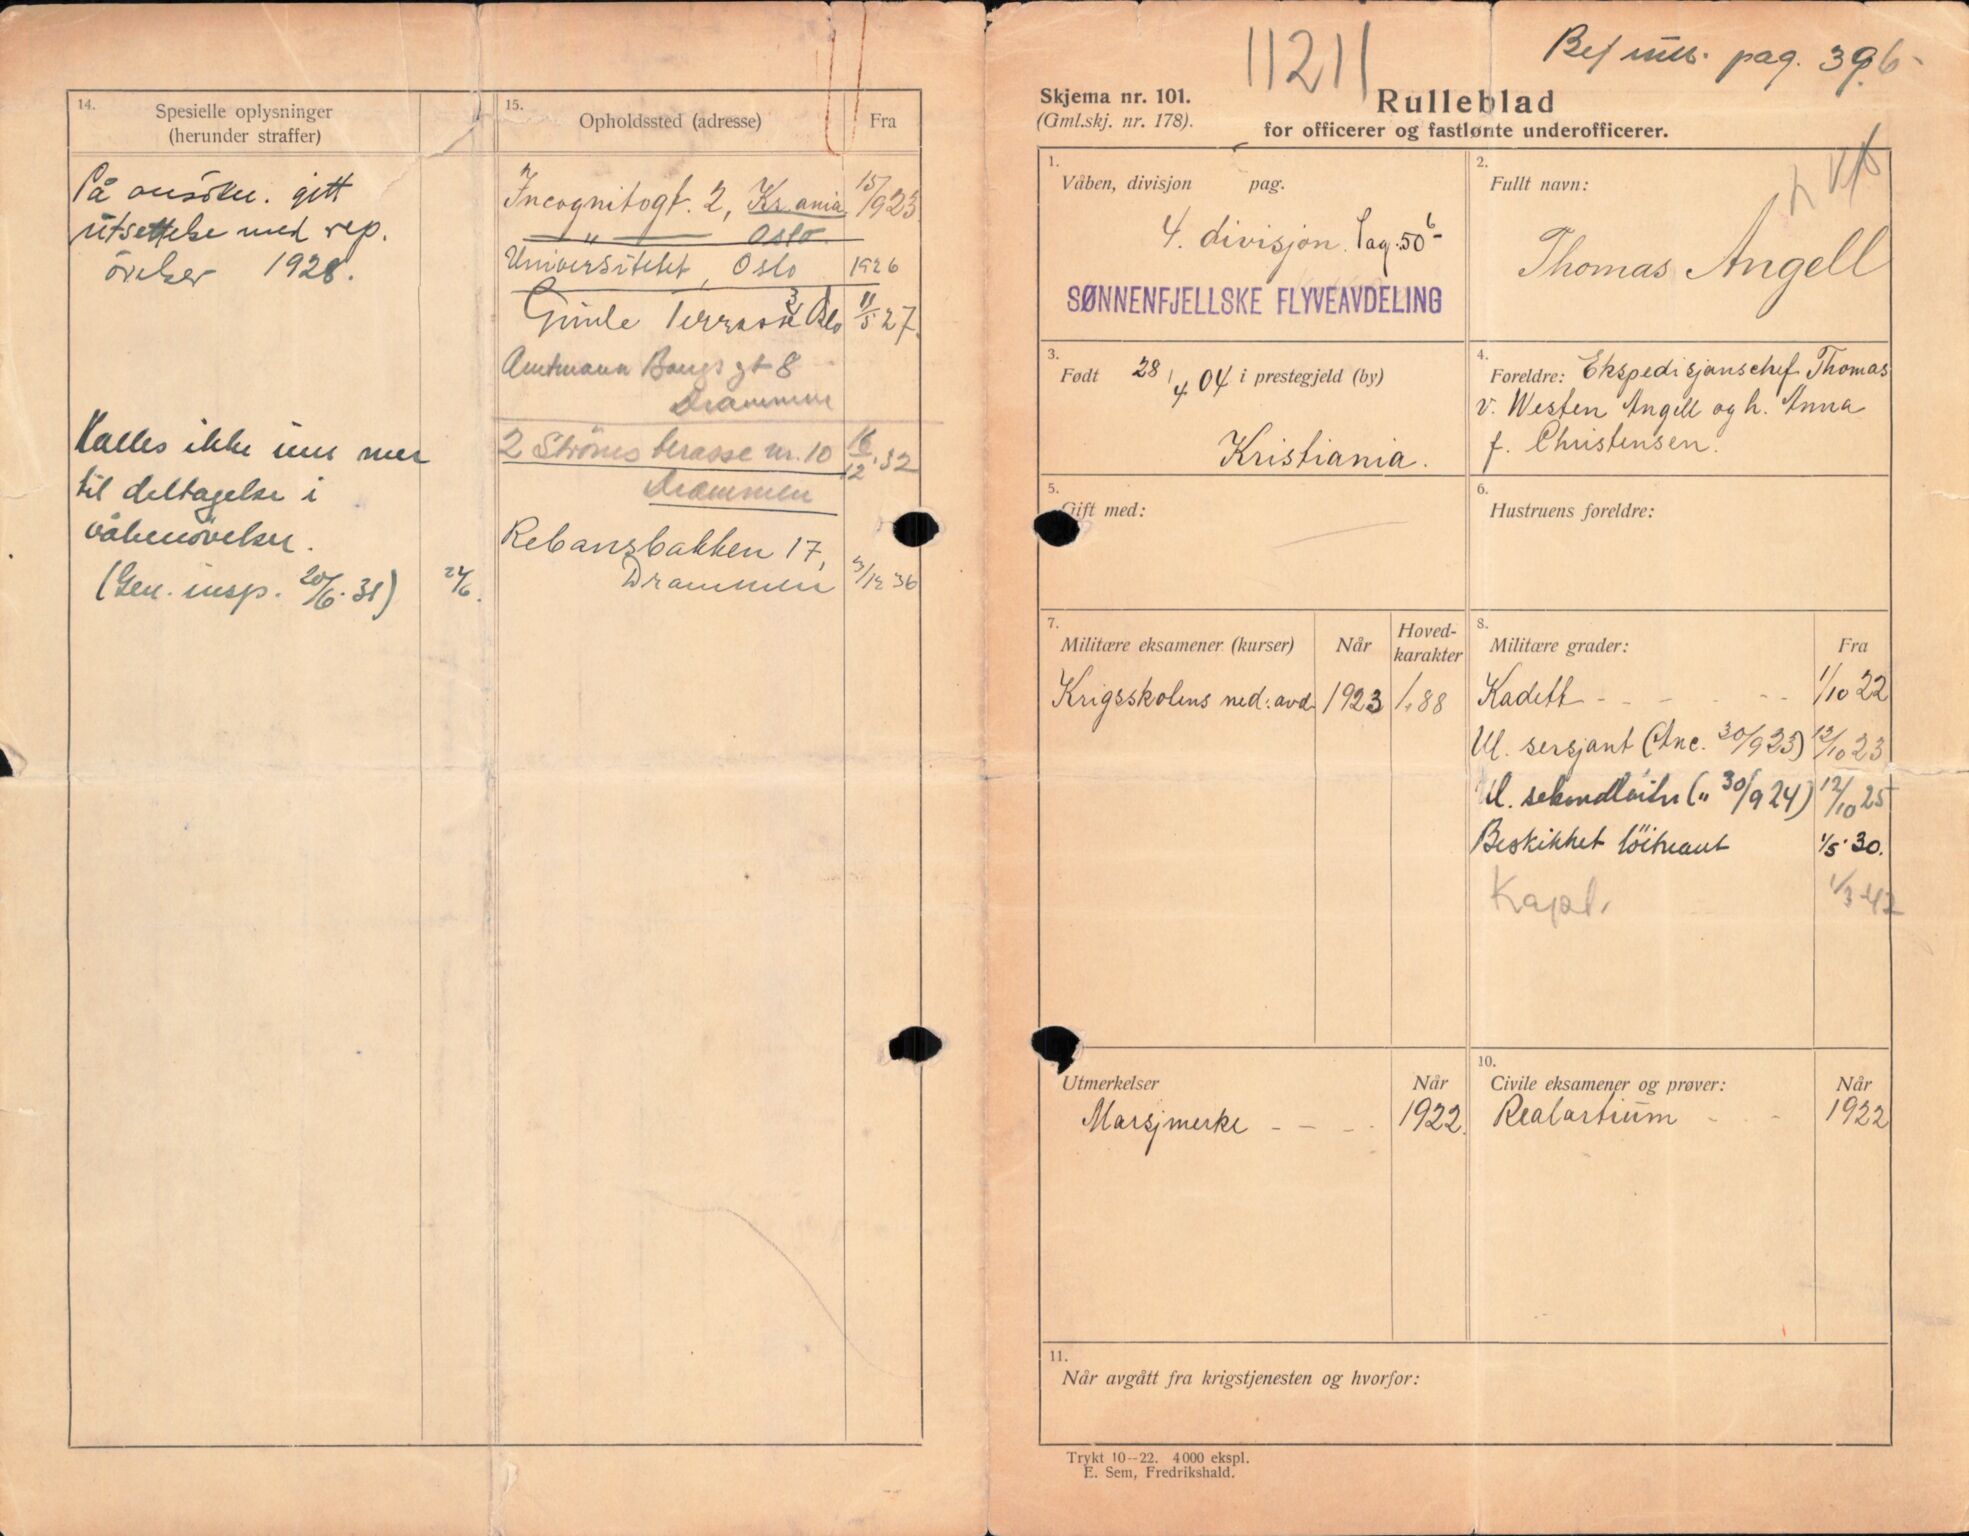 14.
Spesielle oplysninger
(herunder straffer)
På ansökn. gitt
utsettelse med rep.
övelser 1928.
Kalles ikke inn mer
til deltagelse i
våbenövelser.
(Gen. insp. 20/6. 38) 24/6.
15.
Opholdssted (adresse) Fra
Incognitogt. 2, Kr.ania 15/9 23
— „ — Oslo.
Universitetet, Oslo 1926
Gimle Terrasse 3, Oslo 11/5 27.
Amtmann Bangs gt 8
Drammen
2 Ströms terasse nr. 10 16/12. 32
Drammen
Rebansbakken 17, 3/12 36
Drammen
11211
Bef. rull. pag. 396-
Skjema nr. 101.
(Gml.skj. nr. 178).
Rulleblad
for officerer og fastlønte underofficerer.
1.
Våben, divisjon pag.
4. divisjon. Pag. 50 6-
SØNNENFJELLSKE FLYVEAVDELING
2.
Fullt navn:
Thomas Angell
3.
Født 28/4 04 i prestegjeld (by)
Kristiania.
4.
Foreldre: Ekspedisjonschef Thomas
v. Westen Angell og h. Anna
f. Christensen.
5.
Gift med:
6.
Hustruens foreldre:
7.
Militære eksamener (kurser) Når Hoved-
karakter
Krigsskolens ned. avd. 1923 1,88
8.
Militære grader: Fra
Kadett - - - - - 1/10 22
Ul. sersjant (Anc. 30/9 23) 12/10 23
Ul. sekondløitn („ 30/9 24) 12/10 25
Beskikket löitnant 1/5 30.
Kapt. 1/3 42
Utmerkelser Når
Marsjmerke - - - - 1922.
10.
Civile eksamener og prøver: Når
Realartium - - 1922
11.
Når avgått fra krigstjenesten og hvorfor:
Trykt 10—22. 4000 ekspl.
E. Sem, Fredrikshald.